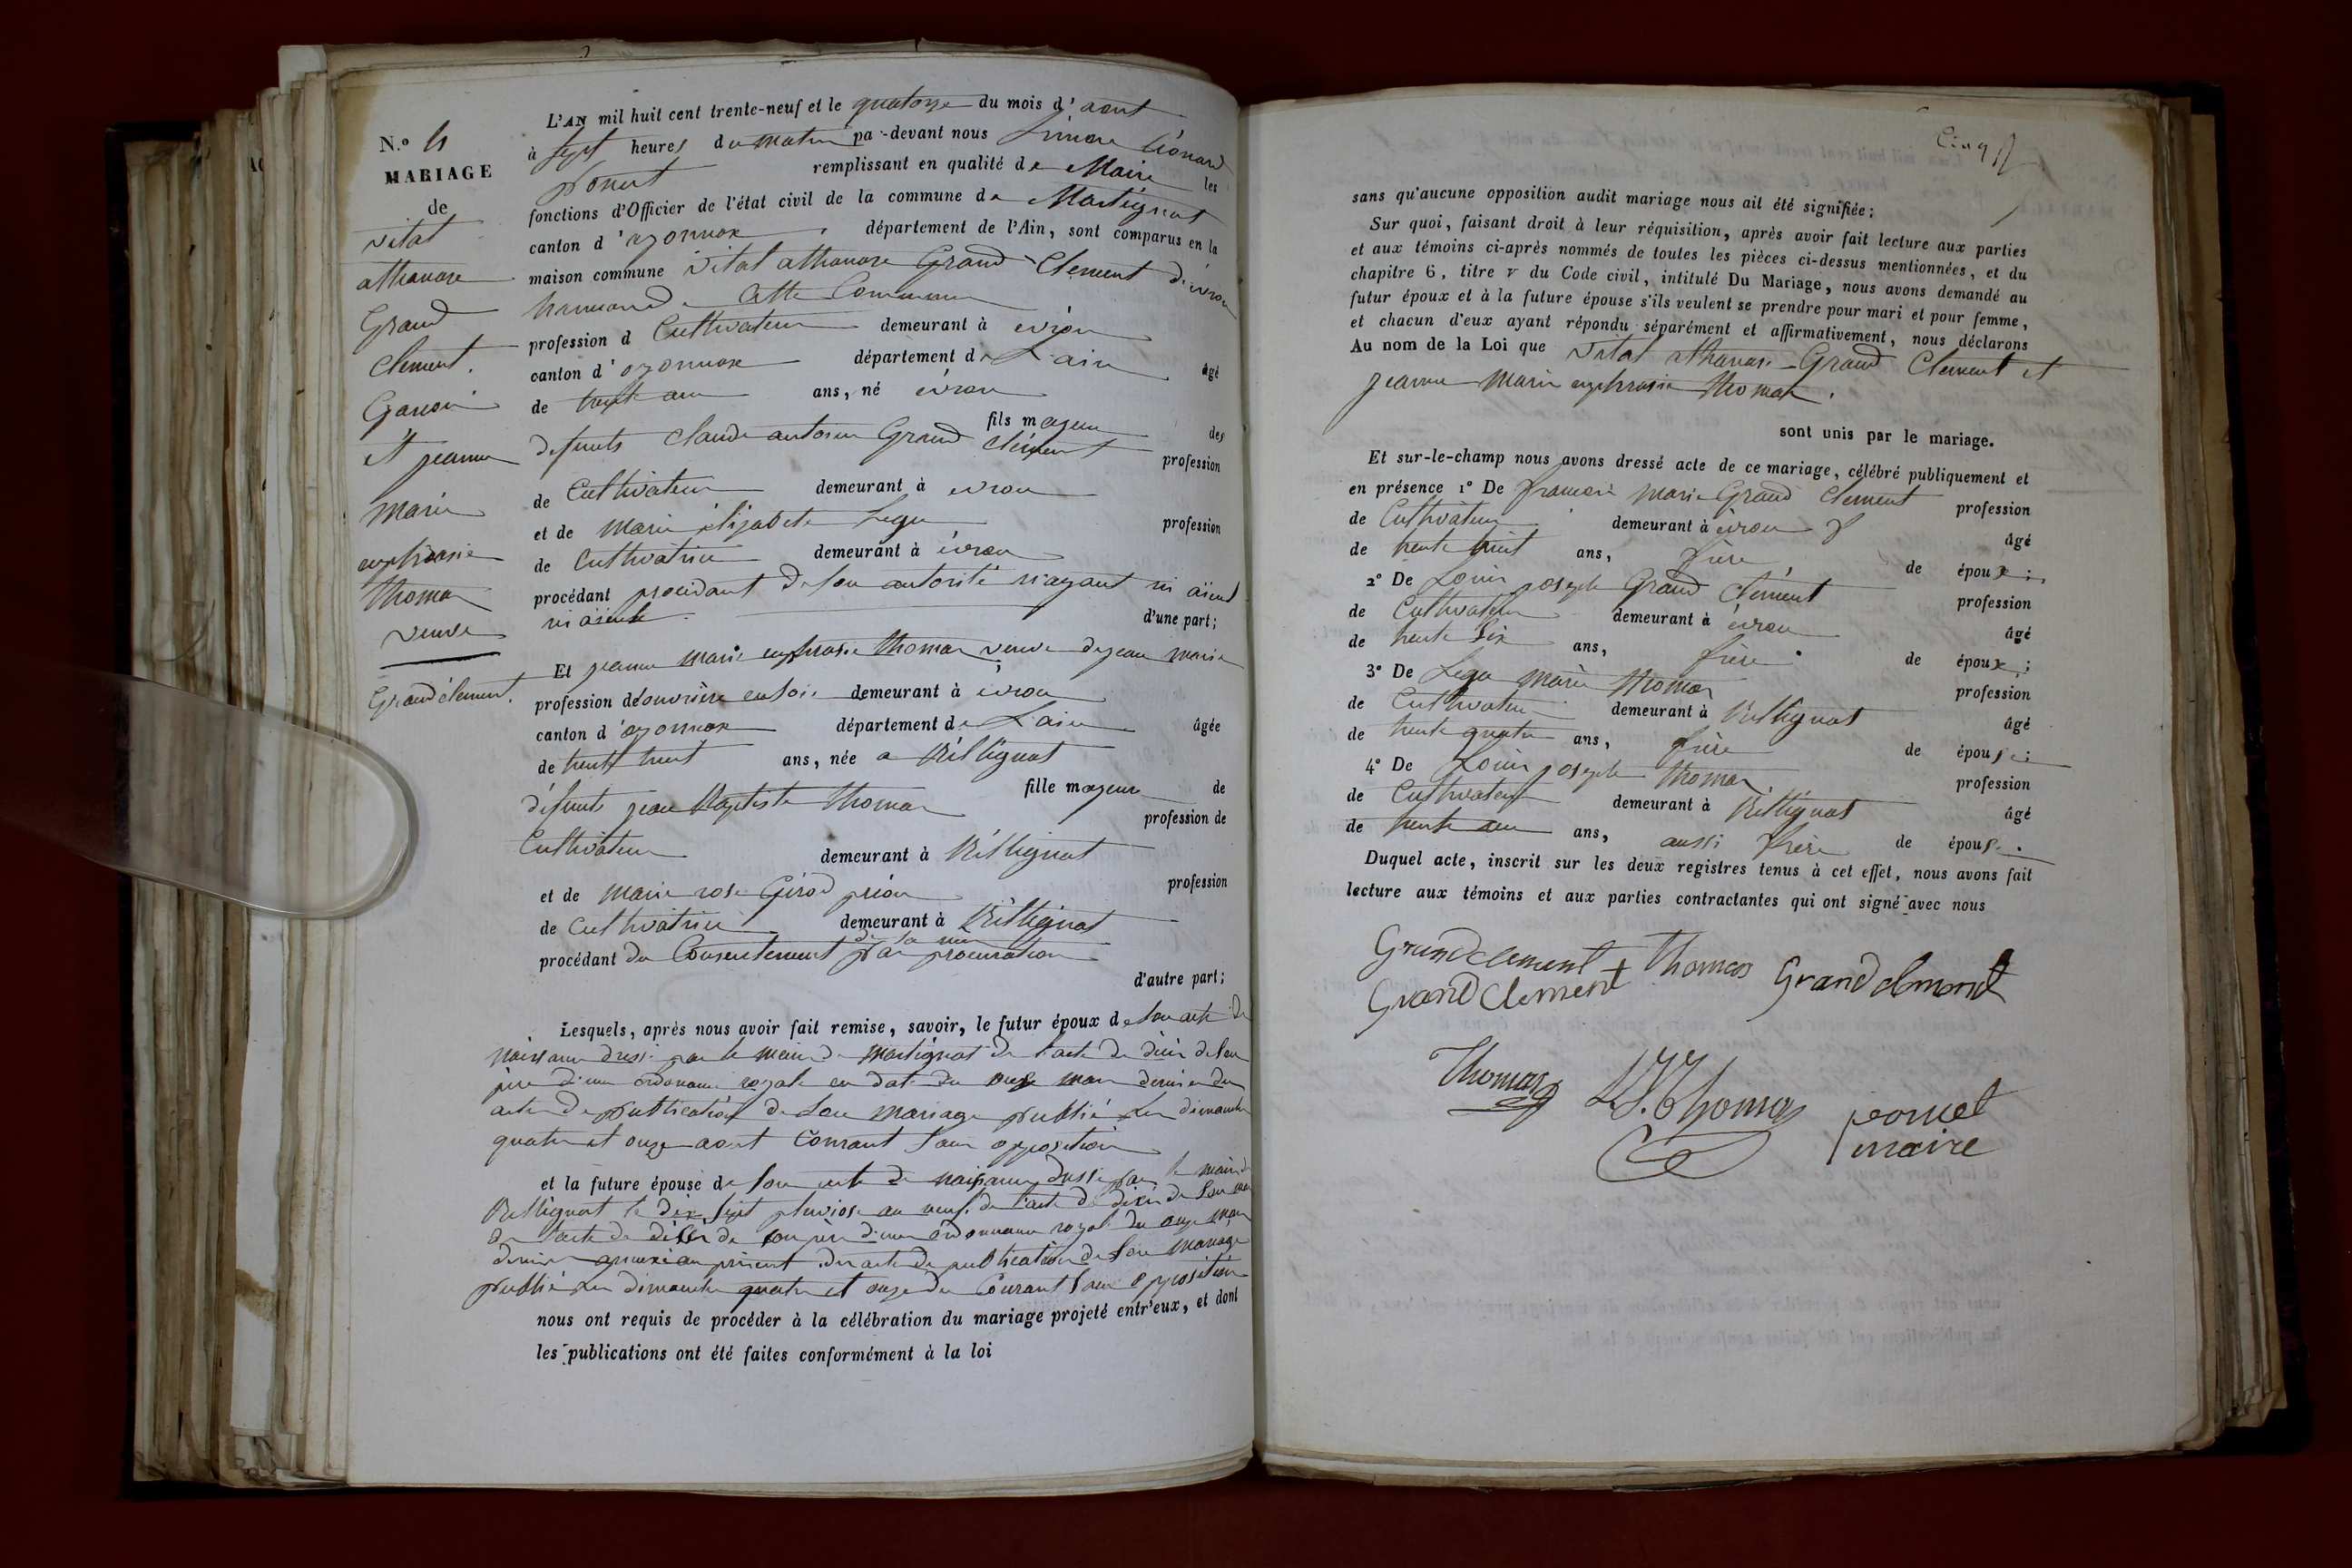 N.o 4
MARIAGE
de
vital
athanase
Grand
Clement.
Garçon
et jeanne
marie
euphrasie
thomas
veuve
Grandclement.
L'AN mil huit cent trente-neuf et le quatorze du mois d'aout
à sept heures du matin pa-devant nous Léonard
ponset remplissant en qualité de Maire les
fonctions d'Officier de l'état civil de la commune de Martignat
canton d'oyonnax, département de l'Ain, sont comparus en la
maison commune vital athanase Grand Clement d'évron
hameau de Cette Commune
profession d Cultivateur demeurant à evron
canton d'oyonnax département de L'ain âgé
de trente ans, né évron
fils majeur des
defunts Claude antoine Grand Clément profession
de Cultivateur demeurant à evron
et de marie élizabete Lega profession
de Cultivatrice demeurant à évron
procédant procédant de son autorité n'ayant ni aïeul
ni aïeule. d'une part;
Et jeanne marie euphrasie thomas veuve de jean marie
profession de ouvrière en soie demeurant à évron
canton d'oyonnax département de L'ain âgée
de trente huit ans, née a Béllignat
fille majeure de
défunts jean Baptiste thomas profession de
Cultivateur demeurant à Béllignat
et de marie rose Girod prion profession
de Cultivatrice demeurant à Béllignat
procédant du Consentement de sa mère par procuration
d'autre part;
Lesquels, après nous avoir fait remise, savoir, le futur époux de son acte de
naissance dressé par le maire de martignat de l'acte de décès de son
père d'une ordonance royale en date du onze mars dernier des
actes de publication de son mariage publié les dimanche
quatre et onze aout Courant sans opposition
et la future épouse de son acte de naissance dressé par le maire de
Bellignat le dix sept pluviose an neuf de l'acte de décès de son mari
de l'acte de décès de son père d'une ordonnance royale du onze mars
dernier annexé au présent des acte de publication de son mariage
publié les dimanche quatre et onze du Courant sans opposition
nous ont requis de procéder à la célébration du mariage projeté entr'eux, et dont
les publications ont été faites conformément à la loi
Cinq
sans qu'aucune opposition audit mariage nous ait été signifiée;
Sur quoi, faisant droit à leur réquisition, après avoir fait lecture aux parties
et aux témoins ci-après nommés de toutes les pièces ci-dessus mentionnées, et du
chapitre 6, titre v du Code civil, intitulé Du Mariage, nous avons demandé au
futur époux et à la future épouse s'ils veulent se prendre pour mari et pour femme,
et chacun d'eux ayant répondu séparément et affirmativement, nous déclarons
Au nom de la Loi que Vital athanase Grand Clement et
jeanne marie euphrasie thomas.
sont unis par le mariage.
Et sur-le-champ nous avons dressé acte de ce mariage, célébré publiquement et
en présence 1o De françois marie Grand Clement profession
de Cultivateur demeurant à évron âgé
de trente huit ans, frère de époux;
2o De Louis joseph Grand Clément profession
de Cultivateur demeurant à évron âgé
de trente six ans, frère de époux;
3o De Lega marie thomas profession
de Cultivateur demeurant à Bellignat âgé
de trente quatre ans, frère de épouse;
4o De Louis joseph thomas profession
de Cultivateur demeurant à Béllignat âgé
de trente ans, aussi frère de épouse.
Duquel acte, inscrit sur les deux registres tenus à cet effet, nous avons fait
lecture aux témoins et aux parties contractantes qui ont signé avec nous
Grandclement + Thomas Grand clment
Grand Clement
Thomas L.J. Thomas ponset
maire